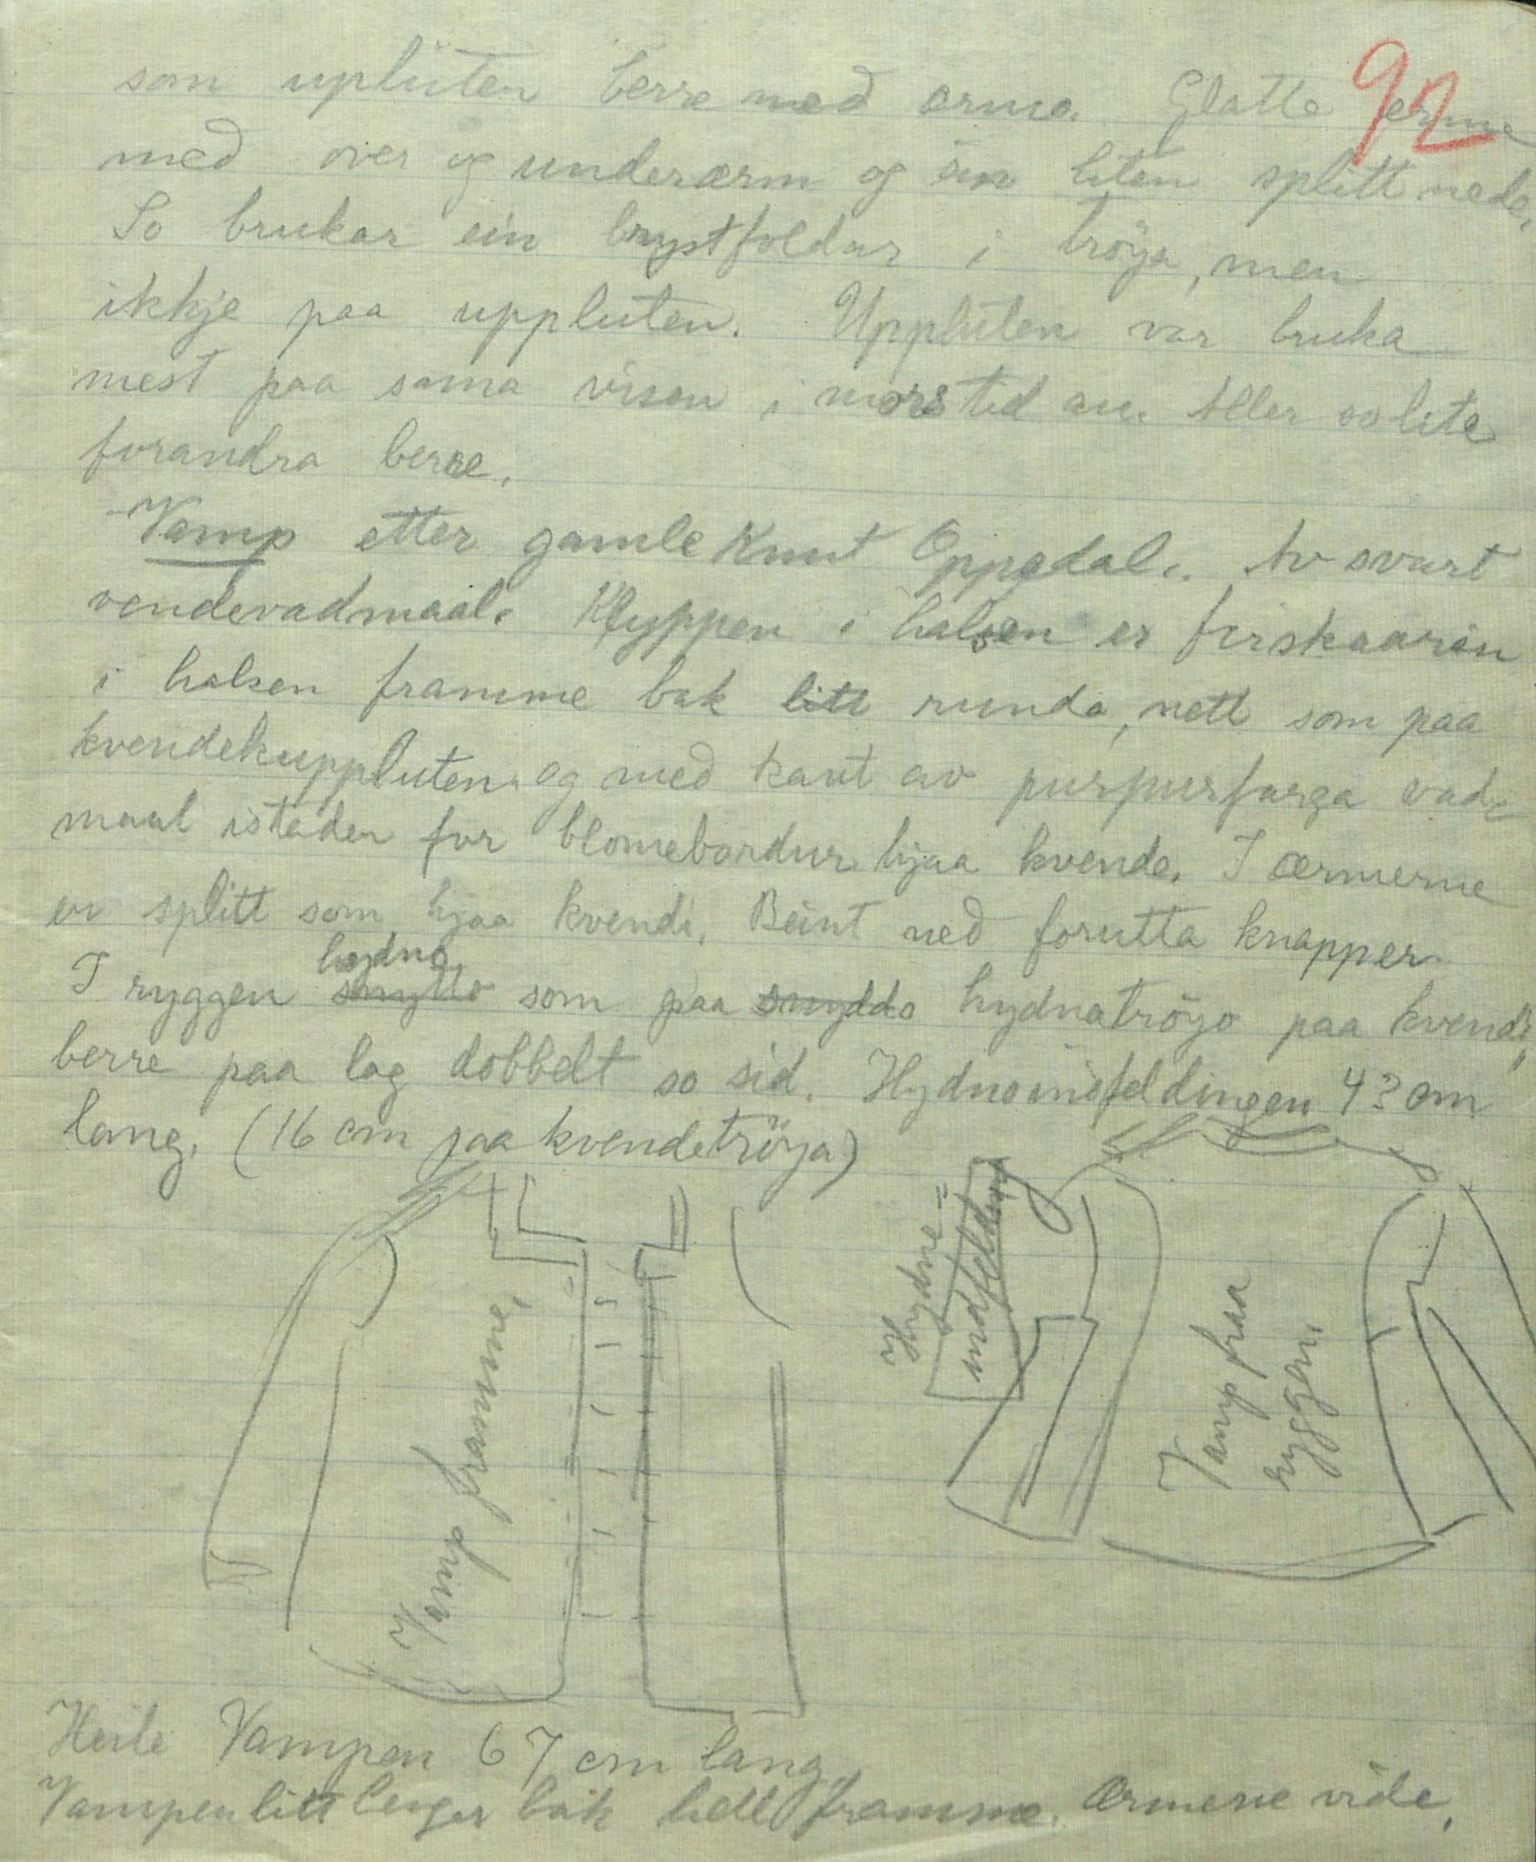 92
som upluten berre med ærma. Glatte ærme
med over og underærm og ein liten splitt nede,
So brukar ein brystfoldur i tröya, men
ikkje paa uppluten. Uppluten var bruka
mest paa sama visen i mors tid au. Eller so lite
forandra berre.
Vamp etter gamle Knut Oppedal. Av svart
vendevadmaal. Klyppen i halsen er firskaaren
i halsen framme bak litt runda, nett som paa
kvendekuppluten og med kant av purpurfarga vad=
maal istaden for blomebordur hjaa kvende. I ærmerne
er splitt som hjaa kvendi. Beint ned forutta knapper.
hydno
I ryggen snytto som paa snyddo hydnatröyo paa kvendi,
berre paa lag dobbelt so sid. Hydnoindfeldingen 43 cm
lang. (16 cm paa kvendetröya)
Vamp framme,
Hydne=
indfelding
Vamp fraa
ryggen,
Heile Vampen 67 cm lang,
Vampen litt lenger bak hell framme. Ærmene vide,